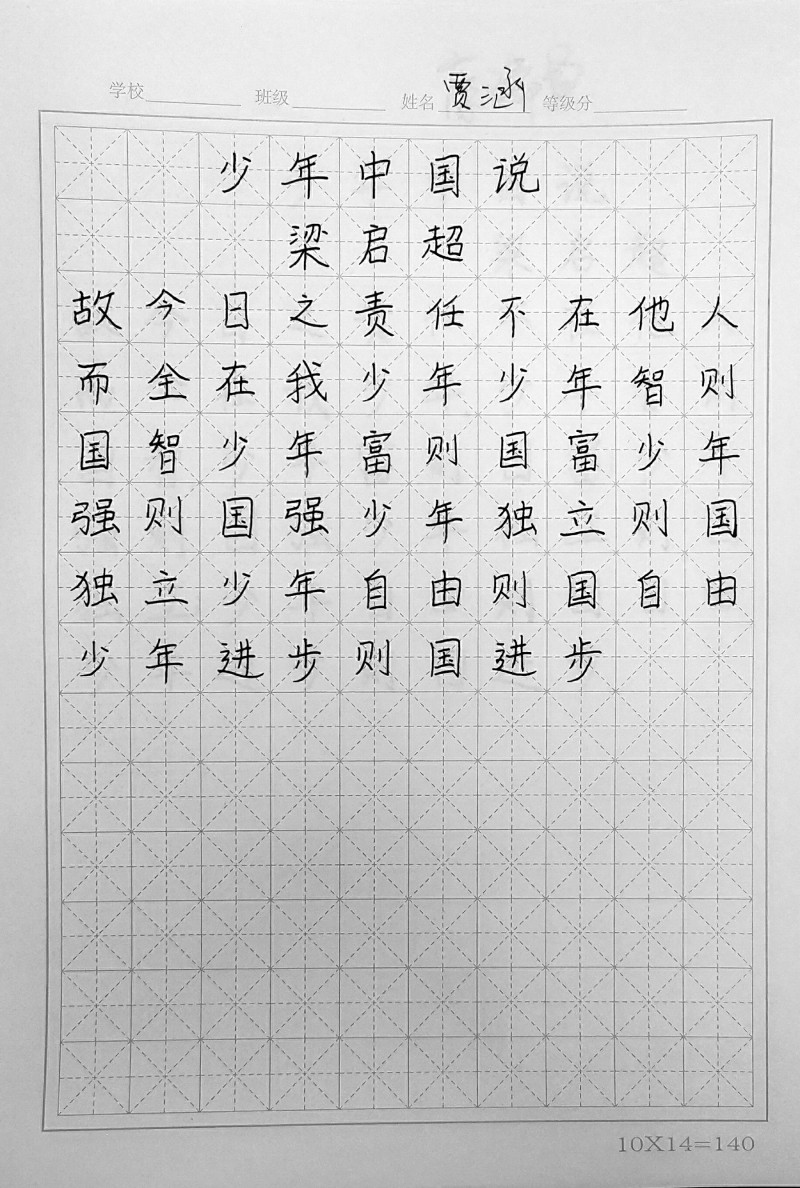 学校 班级 姓名 贾涵 等级分
少年中国说
梁启超
故今日之责任不在他人
而全在我少年少年智则
国智少年富则国富少年
强则国强少年独立则国
独立少年自由则国自由
少年进步则国进步
10X14=140